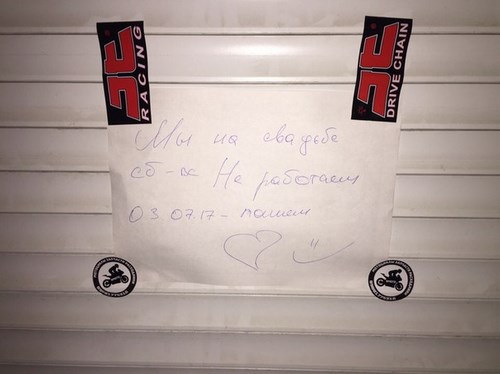 JT RACING
JT DRIVE CHAIN
Мы на свадьбе
сб-вс Не работаем
03 07 17 - пашем